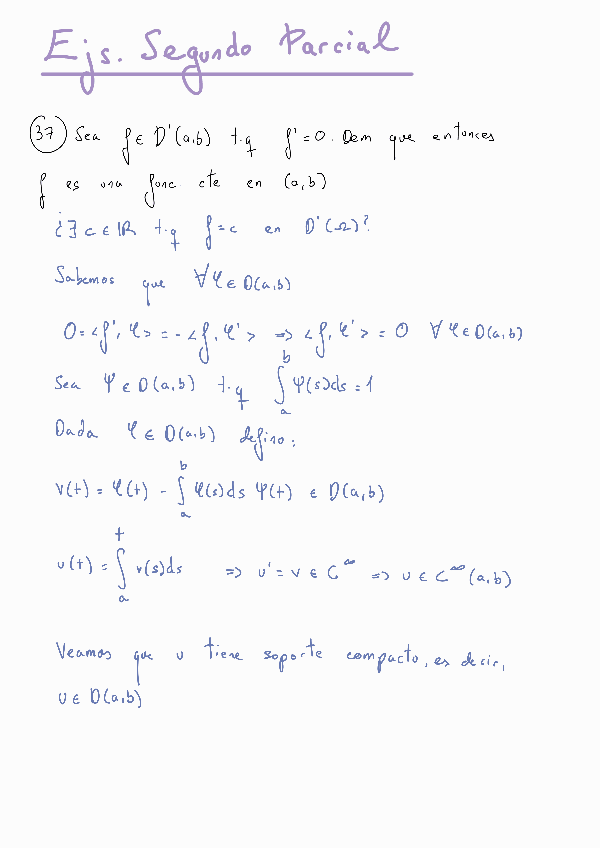 Ejs. Segundo Parcial
37 Sea f ∈ D'(a,b) t.q f' = 0. Dem que entonces
f es una func cte en (a,b)
¿∃ c ∈ ℝ t.q f = c en D'(Ω)?
Sabemos que ∀ φ ∈ D(a,b)
0 = <f', φ> = - <f, φ'> => <f, φ'> = 0 ∀ φ ∈ D(a,b)
Sea ψ ∈ D(a,b) t.q ∫_a^b ψ(s)ds = 1
Dada φ ∈ D(a,b) defino:
v(t) = φ(t) - ∫_a^b φ(s)ds ψ(t) ∈ D(a,b)
u(t) = ∫_a^t v(s)ds => u' = v ∈ C^∞ => u ∈ C^∞(a,b)
Veamos que u tiene soporte compacto, es decir,
u ∈ D(a,b)